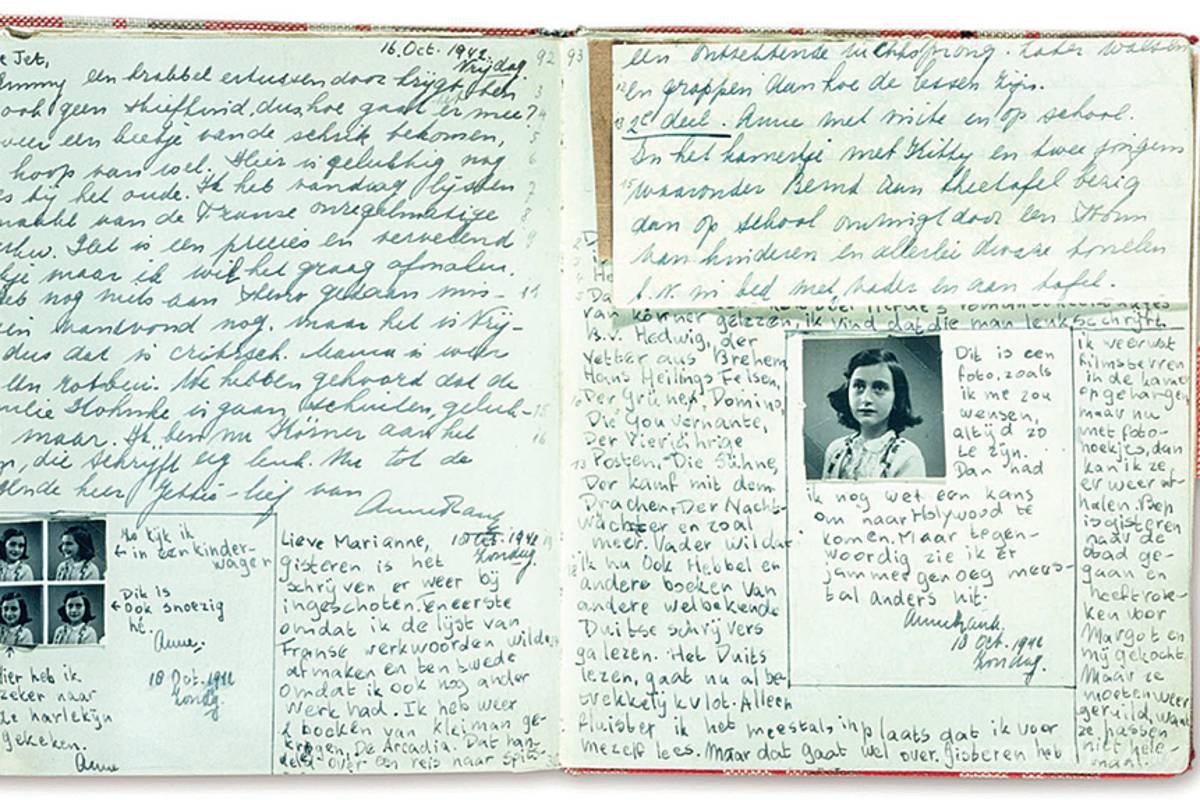 e Jet,
16. Oct. 1942
Vrijdag
92
een krabbel er tussen door krijgt, ben
ook geen hoe gaat er mee?
weer een beetje van de schrik bekomen,
hoop van wel. Hier is gelukkig nog
es bij het oude. Ik heb vandaag lijsten
van de Franse onregelmatige
Het is een precies en vervelend
maar ik wil het graag afmaken.
nog niets aan gedaan mis-
nog. maar het is Vrij-
dus dat is Mama is weer
We hebben gehoord dat de
is gaan schuilen, geluk-
maar. Ik ben nu Körner aan het
die schrijft erg leuk. Nu tot de
van
Anne Frank
Zo kijk ik
in een kinder-
wagen
Dit is
ook snoezig
hé.
Anne.
18 Oct. 1942
Zondag.
Hier heb ik
zeker naar
de harlekijn
gekeken.
Anne
Lieve Marianne,
Oct. 1942
Zondag.
gisteren is het
schrijven er weer bij
ingeschoten. Eneerste
omdat ik de lijst van
Franse werkwoorden wilde
afmaken en ten twede
omdat ik ook nog ander
werk had. Ik heb weer
2 boeken van kleiman ge-
kregen, De Arcadia. Dat han-
deld over een reis naar Spits-
93
een ontzettende luchtsprong. Later walsen
en grappen dan hoe de lessen zijn.
2e deel. Anne met visite en op school.
In het kamertje met Kitty en twee jongens
waaronder Bernd aan theetafel bezig
dan op school omringt door een stroom
van kinderen en allerlei dwaze tonelen
b.v. in bed met vader en aan tafel.
van Körner gelezen, ik vind dat die man leuk schrijft.
B.v. Hedwig, der
Vetter aus Brehem
Hans Heilings Felsen,
Der Grünef, Domino,
Die Gouvernante,
Der Vierjährige
Posten, Die Sühne,
Der Kamf mit dem
Drachen, Der Nacht-
wächter en zoal
meer. Vader wil dat
ik nu ook Hebbel en
andere boeken van
andere welbekende
Duitse schrijvers
ga lezen. Het Duits
lezen, gaat nu al be-
trekkelijk vlot. Alleen
fluister ik het meestal inplaats dat ik voor
mezelf lees. Maar dat gaat wel over. Gisteren heb
Dit is een
foto, zoals
ik me zou
wensen,
altijd zo
te zijn.
Dan had
ik nog wel een kans
om naar Holywood te
komen. Maar tegen-
woordig zie ik er
jammer genoeg mees-
tal anders uit.
Anne Frank.
18 Oct. 1942
Zondag.
ik weer wat
filmsterren
in de kamer
opgehangen,
maar nu
met foto-
hoekjes, dan
kan ik ze
er weer af-
halen. Bep
is gisteren
naar de
stad ge-
gaan en
heeft rok-
ken voor
Margot en
mij gekocht.
Maar ze
moeten weer
geruild, want
ze passen
niet hele-
maal.